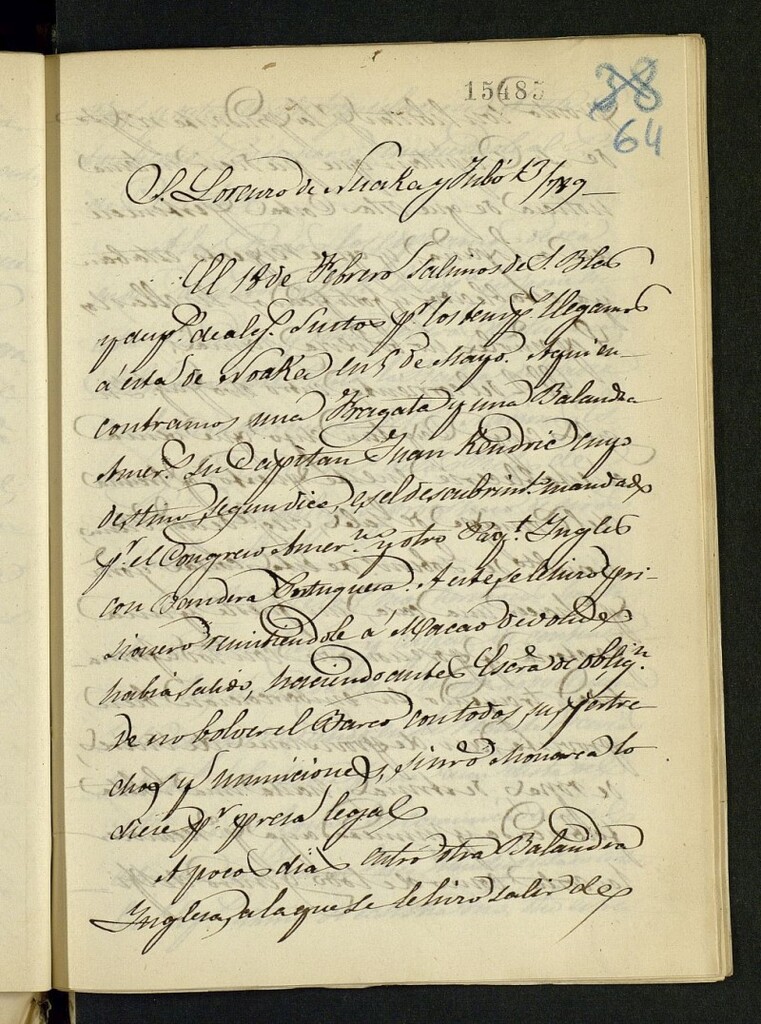 15485
38
64
S. Lorenzo de Nuoka y Julio 13/789
El 18 de Febrero salimos de S. Blas
y desp.s de alg.s sustos p.r los temp.s llegamos
á esta de Noaka en 5 de Mayo. Aqui en-
contramos una Fragata y una Balandra
Amer.s su Capitan Juan Kendric cuyo
destino, segun dice, es el descubrim.to mandado
p.r el Congreso Amer.no y otro Paq.t Ingles
con Bandera Portuguesa. A este se le hizo pri-
sionero remitiendole á Macao de donde
habia salido, haciendo antes Escra de oblig.n
de volver el Barco con todos sus pertre
chos y municiones, si nro Monarca lo
diese p.r presa legal
A pocos dias entro otra Balandra
Inglesa, a la que se le hizo salir de